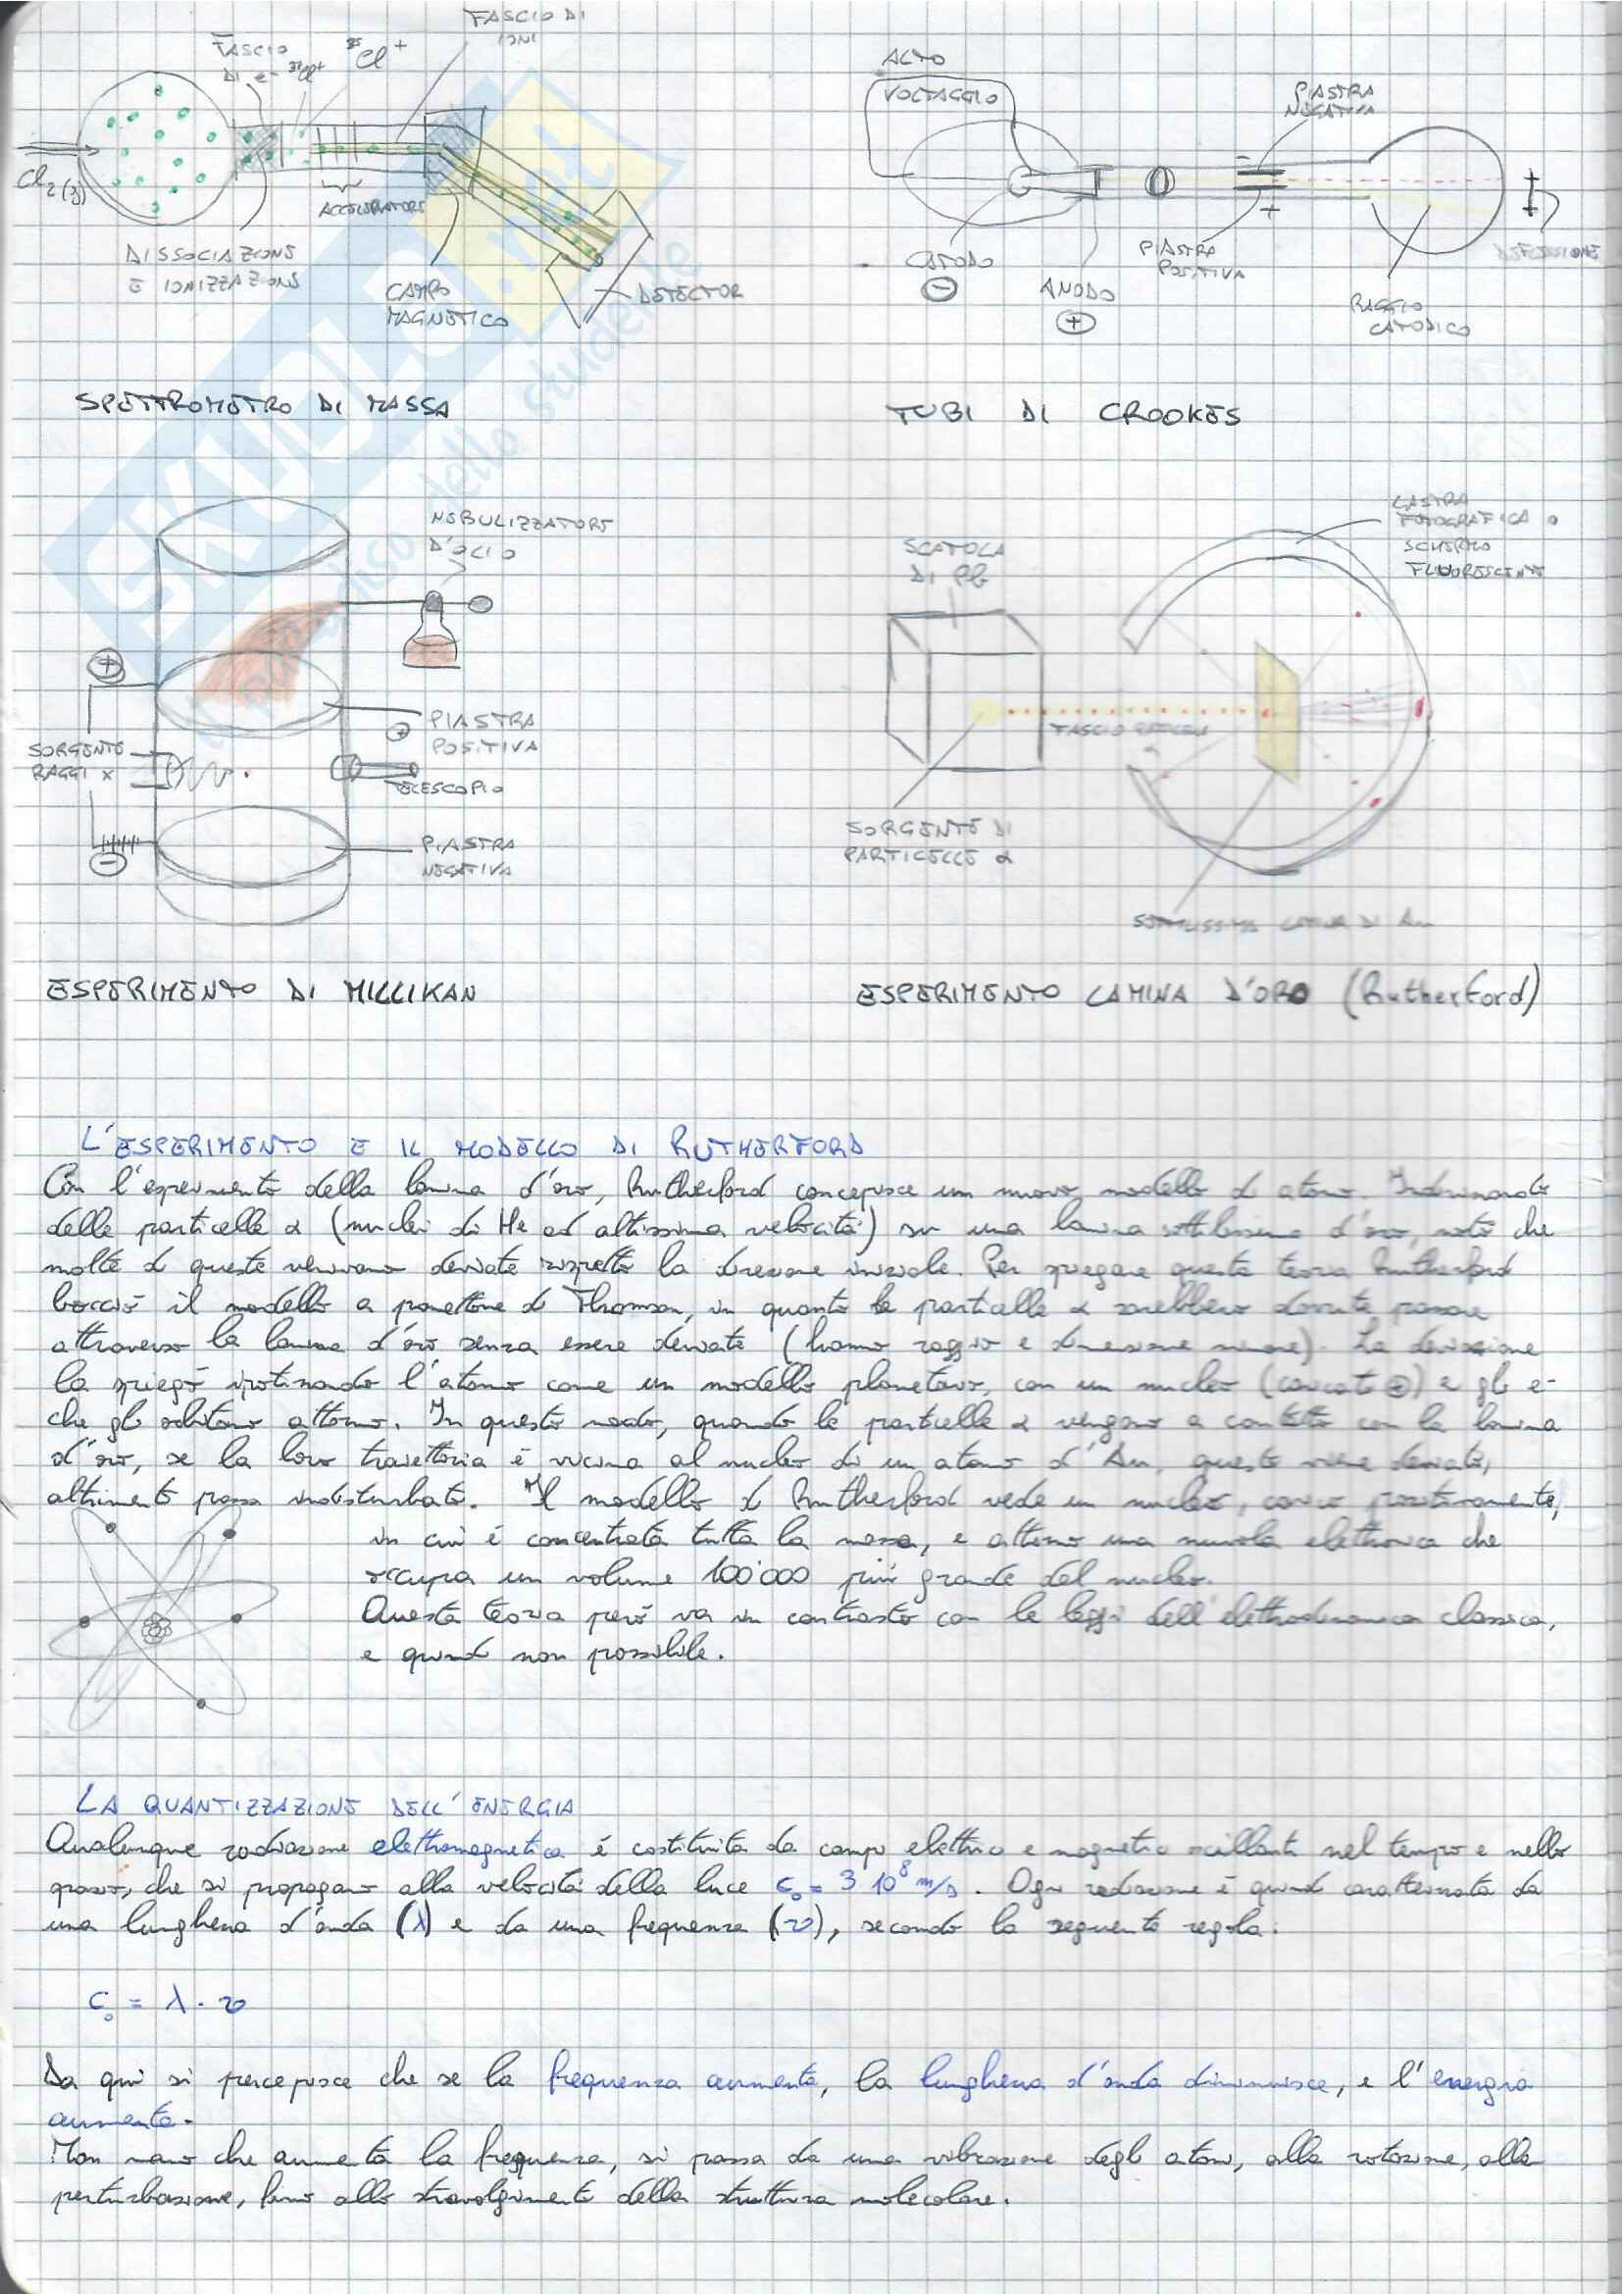 FASCIO DI e-
³⁷Cl⁺
³⁵Cl⁺
FASCIO DI IONI
Cl₂(g)
ACCELERATORE
DISSOCIAZIONE
E IONIZZAZIONE
CAMPO MAGNETICO
DETECTOR
SPETTROMETRO DI MASSA
ALTO
VOLTAGGIO
PIASTRA NEGATIVA
-
+
CATODO
-
ANODO
+
PIASTRA POSITIVA
RAGGIO CATODICO
DEFLESSIONE
TUBI DI CROOKES
NEBULIZZATORE
D'OLIO
+
PIASTRA
POSITIVA
+
SORGENTE
RAGGI X
TELESCOPIO
-
PIASTRA
NEGATIVA
ESPERIMENTO DI MILLIKAN
LASTRA
FOTOGRAFICA O
SCHERMO
FLUORESCENTE
SCATOLA
DI Pb
FASCIO PARTICELLE
α
SORGENTE DI
PARTICELLE α
SOTTILISSIMA LAMINA DI Au
ESPERIMENTO LAMINA D'ORO (Rutherford)
L'ESPERIMENTO E IL MODELLO DI RUTHERFORD
Con l'esperimento della lamina d'oro, Rutherford concepisce un nuovo modello di atomo. Indirizzando
delle particelle α (nuclei di He ad altissima velocità) su una lamina sottilissima d'oro, notò che
molte di queste venivano deviate rispetto la direzione iniziale. Per spiegare questa teoria Rutherford
bocciò il modello a panettone di Thomson, in quanto le particelle α sarebbero dovute passare
attraverso la lamina d'oro senza essere deviate (hanno raggio e dimensione minore). La deviazione
la spiegò ipotizzando l'atomo come un modello planetario, con un nucleo (caricato +) e gli e-
che gli orbitano attorno. In questo modo, quando le particelle α vengono a contatto con la lamina
d'oro, se la loro traiettoria è vicina al nucleo di un atomo d'Au, questo viene deviato,
altrimenti passa indisturbato. Il modello di Rutherford vede un nucleo, carico positivamente,
in cui è concentrata tutta la massa, e attorno una nuvola elettronica che
occupa un volume 100'000 più grande del nucleo.
Questa teoria però va in contrasto con le leggi dell'elettrodinamica classica,
e quindi non possibile.
LA QUANTIZZAZIONE DELL'ENERGIA
Qualunque radiazione elettromagnetica è costituita da campi elettrico e magnetico oscillanti nel tempo e nello
spazio, che si propagano alla velocità della luce c₀ = 3 10⁸ m/s. Ogni radiazione è quindi caratterizzata da
una lunghezza d'onda (λ) e da una frequenza (ν), secondo la seguente regola:
c₀ = λ · ν
Da qui si percepisce che se la frequenza aumenta, la lunghezza d'onda diminuisce, e l'energia
aumenta.
Man mano che aumenta la frequenza, si passa da una vibrazione degli atomi, alla rotazione, alla
perturbazione, fino allo stravolgimento della struttura molecolare.
SKUOLA.net
il paradiso dello studente